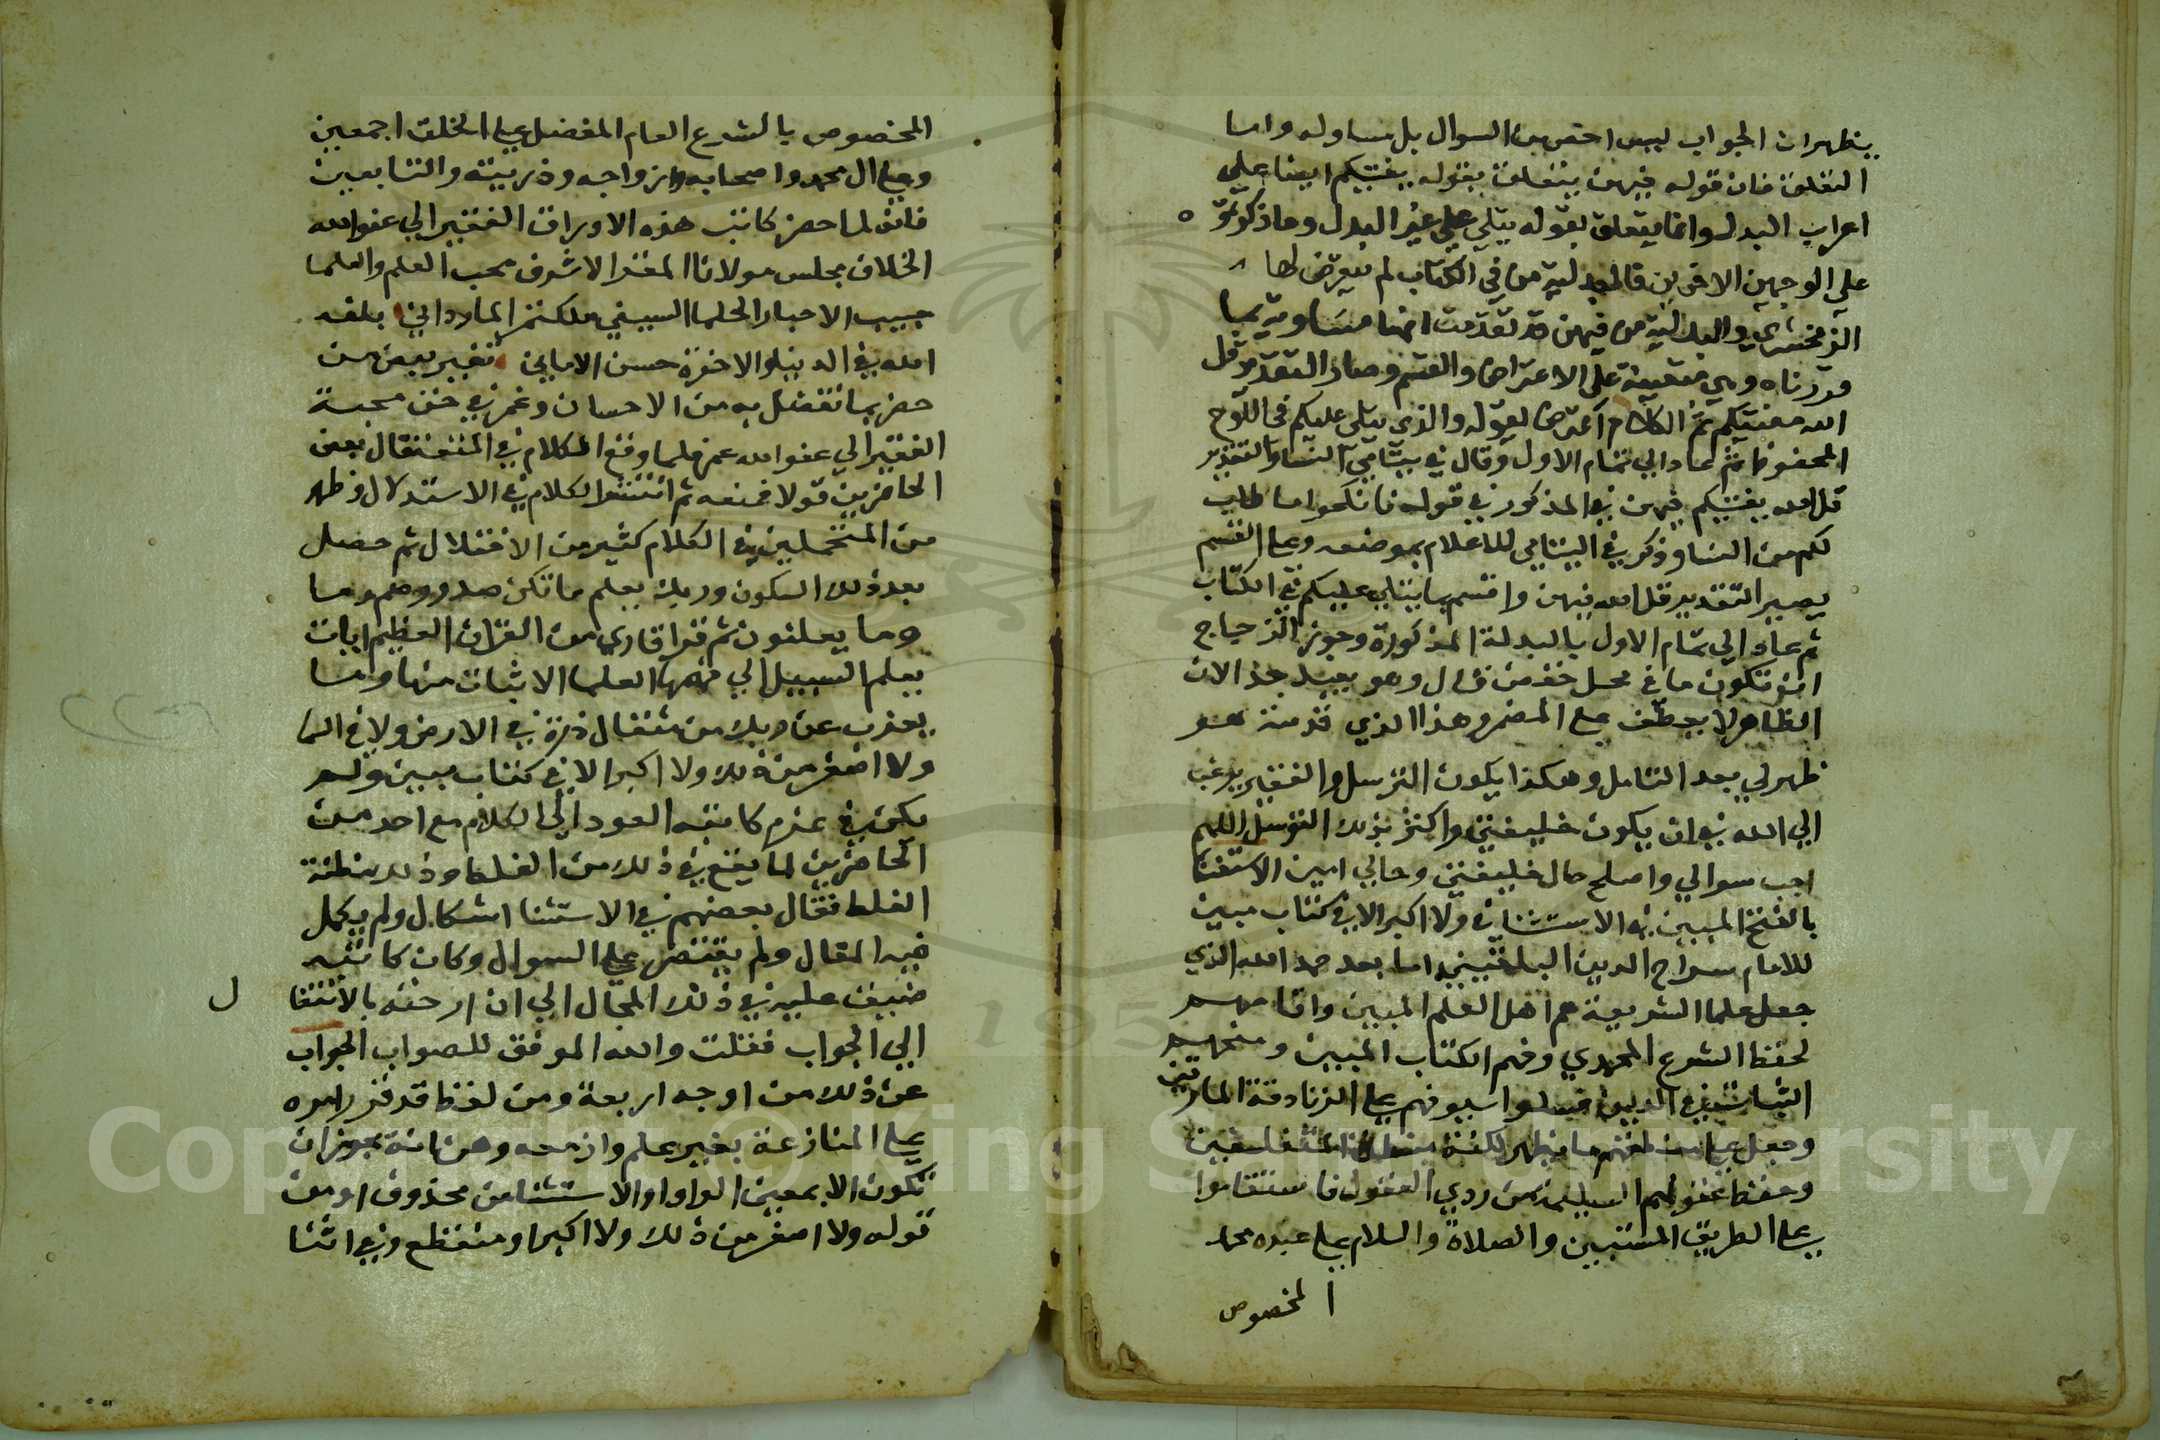 يظهر ان الجواب ليس اخص من السوال بل مساو له واما
التعلق فان قوله فيهن يتعلق بقوله يفتيكم ايضا علي
اعراب البدل وانما يتعلق بقوله يتلي علي غير البدل وما ذكر
علي الوجهين الاخرين فالبدلية من في الكتاب لم يتعرض لها
الزمخشري والبدلية من فيهن قد تقدمت انها مساوية لما
قررناه وهي متعينة علي الاعتراض والقسم وصار التقدير قل
الله يفتيكم ثم الكلام اعترض بقوله والذي يتلي عليكم في اللوح
المحفوظ ثم عاد الي تمام الاول وقال في يتامي النسا والتقدير
قل الله يفتيكم فيهن في المذكور في قوله فانكحوا ما طاب
لكم من النسا وذكر في اليتامي للاعلام بموضعه وعلي القسم
يصير التقدير قل الله فيهن واقسم بما يتلي عليكم في الكتاب
ثم عاد الي تمام الاول بالبدلة المذكورة وجوز الزجاج
ان تكون ما في محل خفض قال وهو بعيد جدا لان
الظاهر لا يعطف علي المضمر وهذا الذي قدمته هو
ظهر لي بعد التامل وهكذا يكون الترسل والفقير يرغب
الي الله في ان يكون خليفتي واكثر بذلك التوسل اللهم
اجب سوالي واصلح حال خليفتي وحالي امين الاستغنا
بالفتح المبين في الاستثنا في ولا اكبر الا في كتاب مبين
للامام سراج الدين البلقيني اما بعد حمد الله الذي
جعل علما الشريعة هم اهل العلم المبين واقامهم
لحفظ الشرع المحمدي وفهم الكتاب المبين ومنحهم
الثبات في الدين فسلوا سيوفهم علي الزنادقة المارقين
وجعل علي من ما يظهر المتفلسفين
وحفظ عقولهم السليمة من ردي العقول فاستقاموا
علي الطريق المستبين والصلاة والسلام علي عبده محمد
المخصوص
المخصوص بالشرع العام المفضل علي الخلق اجمعين
وعلي ال محمد واصحابه وازواجه وذريته والتابعين
فانه لما حضر كاتب هذه الاوراق الفقير الي عفو الله
الخلاق مجلس مولانا المقر الاشرف محب العلم والعلما
حبيب الاحبار الحلما السيفي ملكتمر المارداني بلغه
الله في الدنيا والاخرة حسن الاماني تغير بعض من
حضر بما تفضل به من الاحسان وغمر في حق محبة
الفقير الي عفو الله عمر فلما وقع الكلام في المتعة قال بعض
الحاضرين قولا فمنعه ثم انتشر الكلام في الاستدلال وظهر
من المتحملين في الكلام كثير من الاختلال ثم حصل
بعد ذلك السكون وربك يعلم ما تكن صدورهم وما
وما يعلنون ثم قرا قاري من القران العظيم ايات
يعلم السبيل الي فهمها العلما الاثبات منها وما
يعزب عن ربك من مثقال ذرة في الارض ولا في السما
ولا اصغر من ذلك ولا اكبر الا في كتاب مبين ولم
يكن في عزم كاتبه العود الي الكلام مع احد من
الحاضرين لما يقع في ذلك من الغلط وذلك مظنة
الغلط فقال بعضهم في الاستثنا اشكال ولم يكمل
فيه المقال ولم يقتصر علي السوال وكان كاتبه
ضيق عليه في ذلك المجال الي ان ارحقه بالانتقا
ل
الي الجواب فقلت والله الموفق للصواب الجواب
عن ذلك من اوجه اربعة ومن لفظ قد فز راموه
علي المنازعة بغير علم وازمعه وهن انه يجوز ان
تكون الا بمعني الواو او الاستثنا من محذوف او من
قوله ولا اصغر من ذلك ولا اكبر او منقطع وفي اثنا